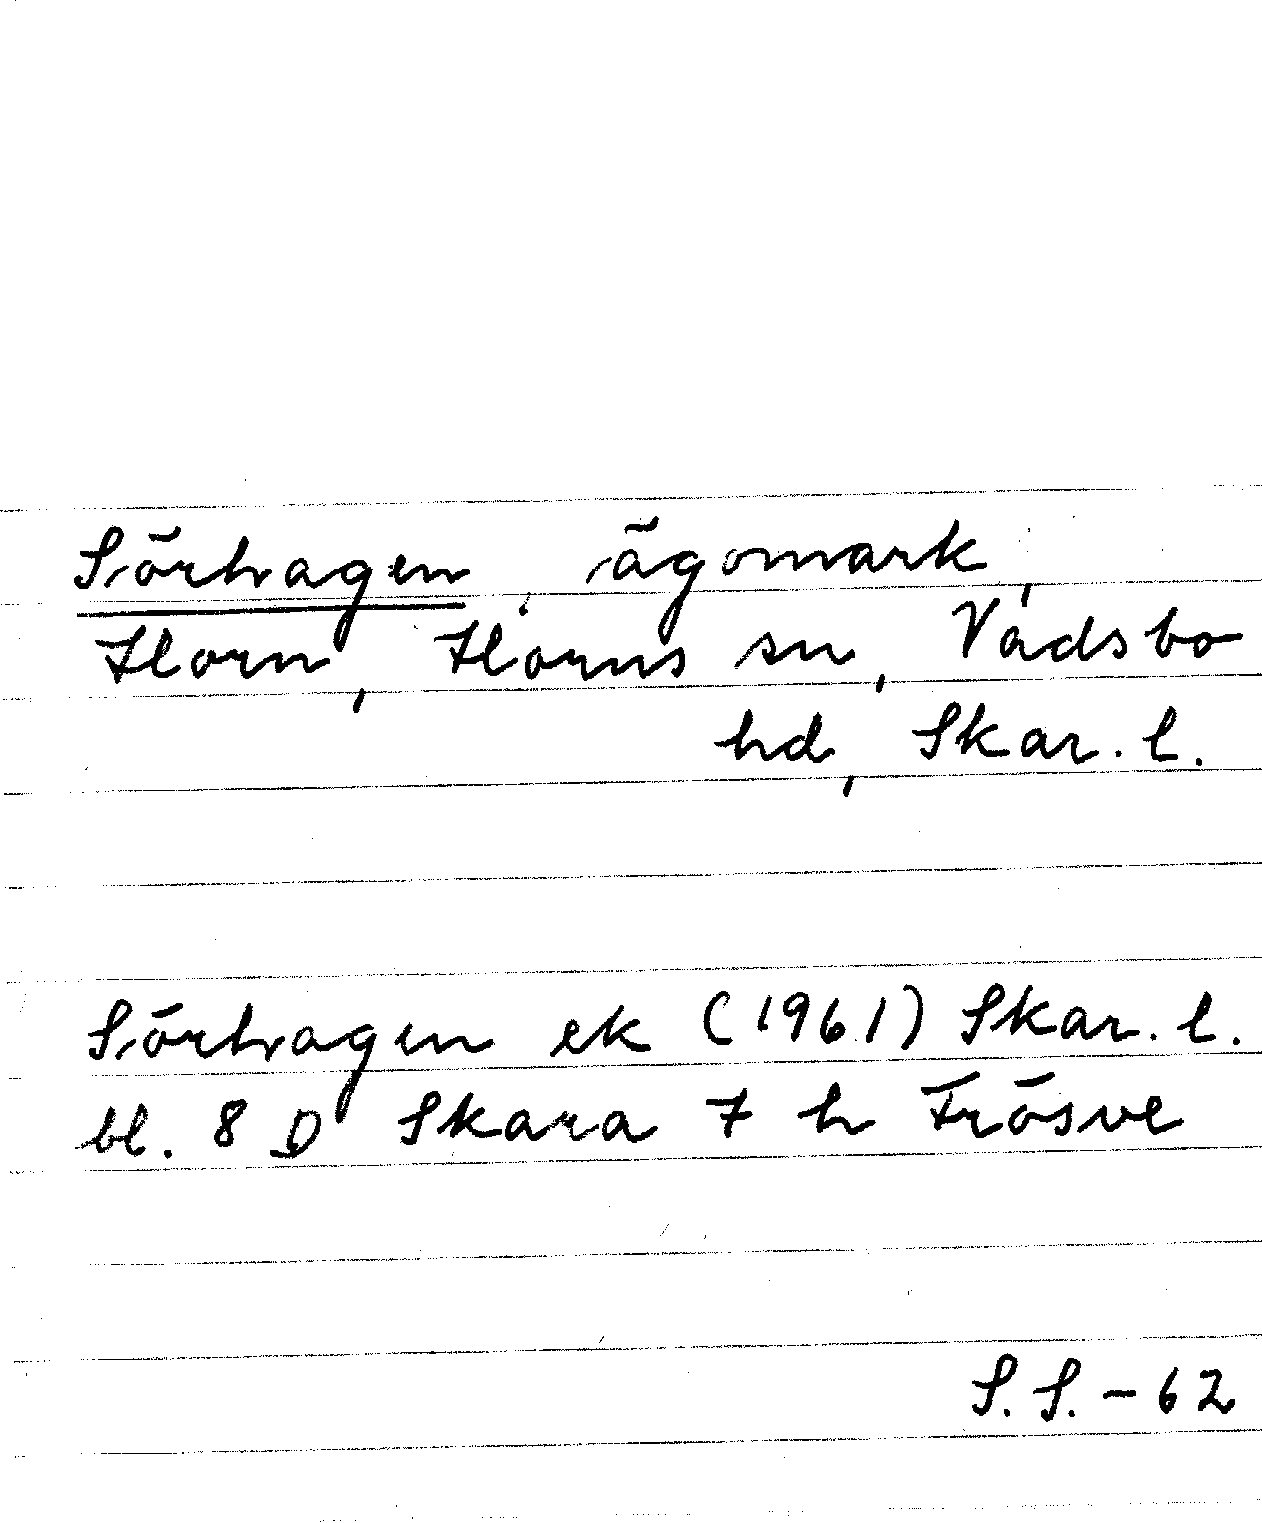 Sörhagen, ägomark,
Horn, Horns sn, Vadsbo
hd, Skar. l.
Sörhagen ek (1961) Skar. l.
bl. 8 D Skara 7 h Frösve
S. S. - 62